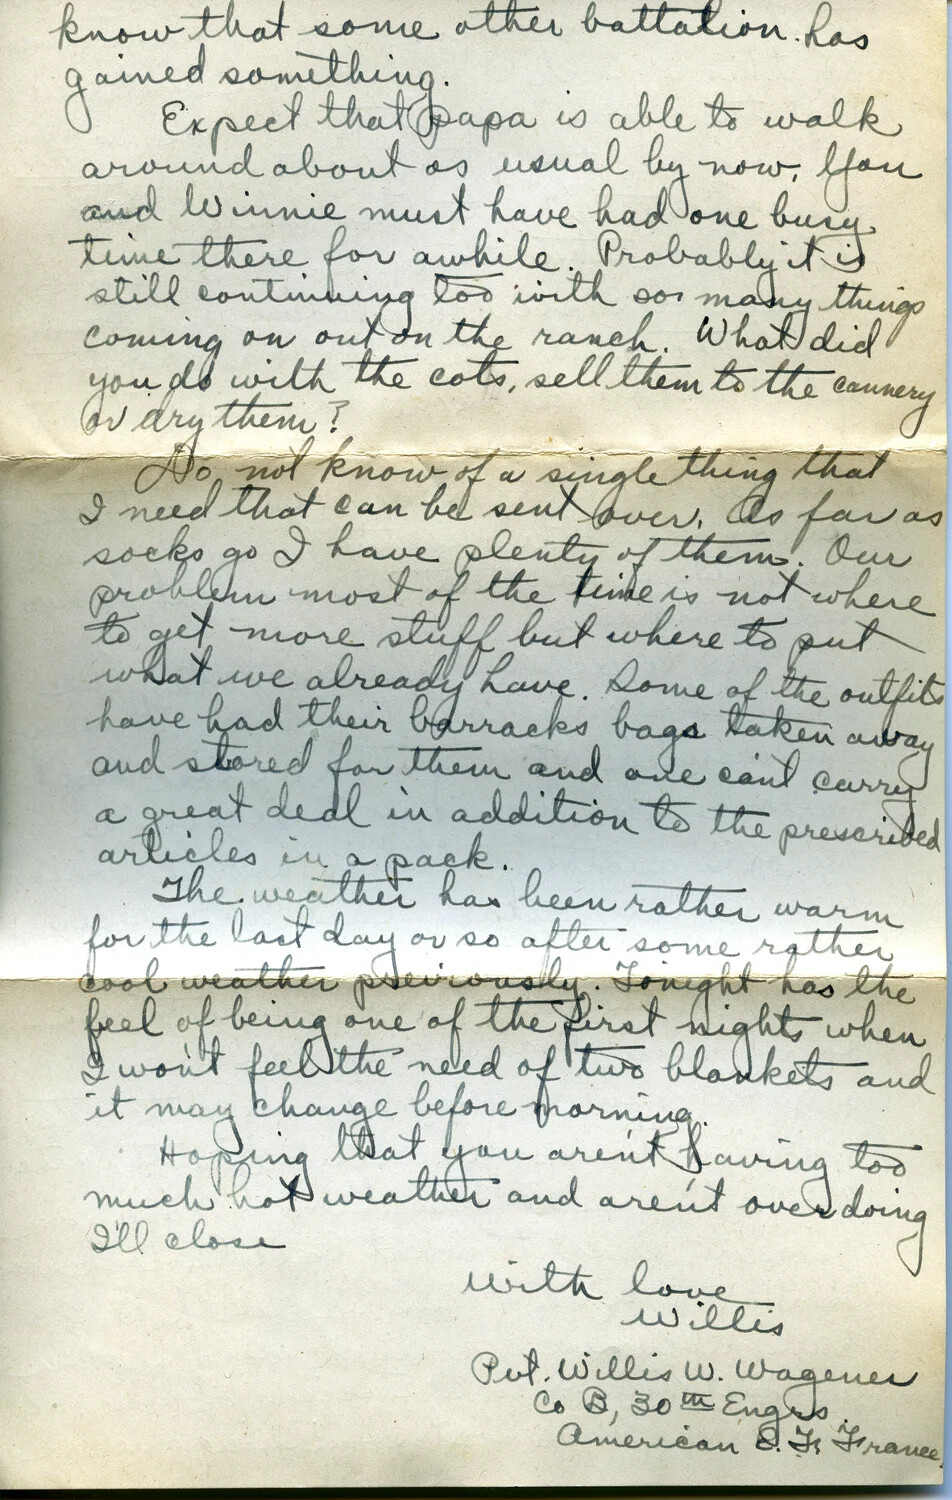 know that some other battalion has
gained something.
Expect that papa is able to walk
around about as usual by now. You
and Winnie must have had one busy
time there for awhile. Probably it is
still continuing too with so many things
coming on out on the ranch. What did
you do with the cots, sell them to the cannery
or dry them?
Do not know of a single thing that
I need that can be sent over. As far as
socks go I have plenty of them. Our
problem most of the time is not where
to get more stuff but where to put
what we already have. Some of the outfits
have had their barracks bags taken away
and stored for them and one can't carry
a great deal in addition to the prescribed
articles in a pack.
The weather has been rather warm
for the last day or so after some rather
cool weather previously. Tonight has the
feel of being one of the first nights when
I won't feel the need of two blankets and
it may change before morning.
Hoping that you aren't having too
much hot weather and aren't over doing
I'll close
With love
Willis
Pvt. Willis W. Wagener
Co B, 30th Engrs.
American E. F. France.